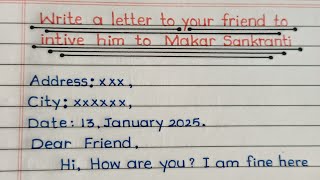 Write a letter to your friend to
intive him to Makar Sankranti
Address: xxx,
City: xxxxxx,
Date: 13, January 2025.
Dear Friend,
Hi, How are you? I am fine here